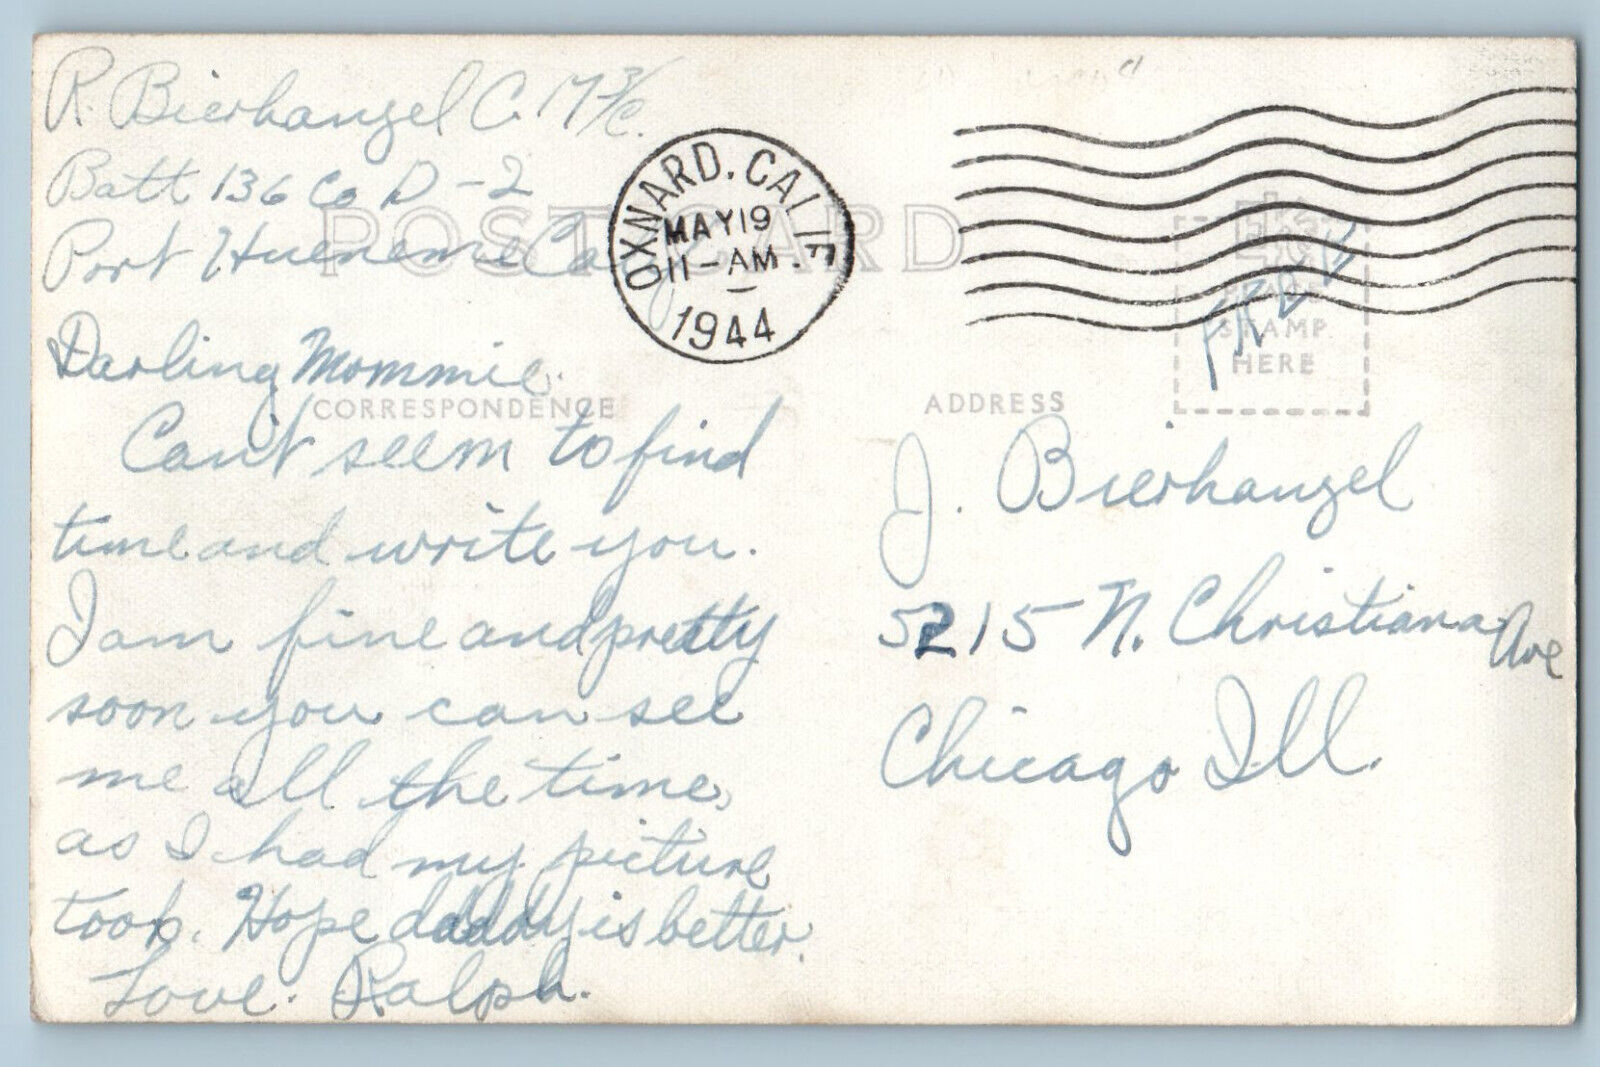 R. Bierhangel C. M 3/c.
Batt 136 Co D-2
Port Hueneme Cal
POST CARD
OXNARD, CALIF.
MAY 19
11-AM
1944
Darling Mommie.
CORRESPONDENCE
Can't seem to find
time and write you.
I am fine and pretty
soon you can see
me all the time,
as I had my picture
took. Hope daddy is better.
Love. Ralph.
FREE
PLACE
STAMP
HERE
ADDRESS
J. Bierhangel
5215 N. Christiana Ave
Chicago Ill.